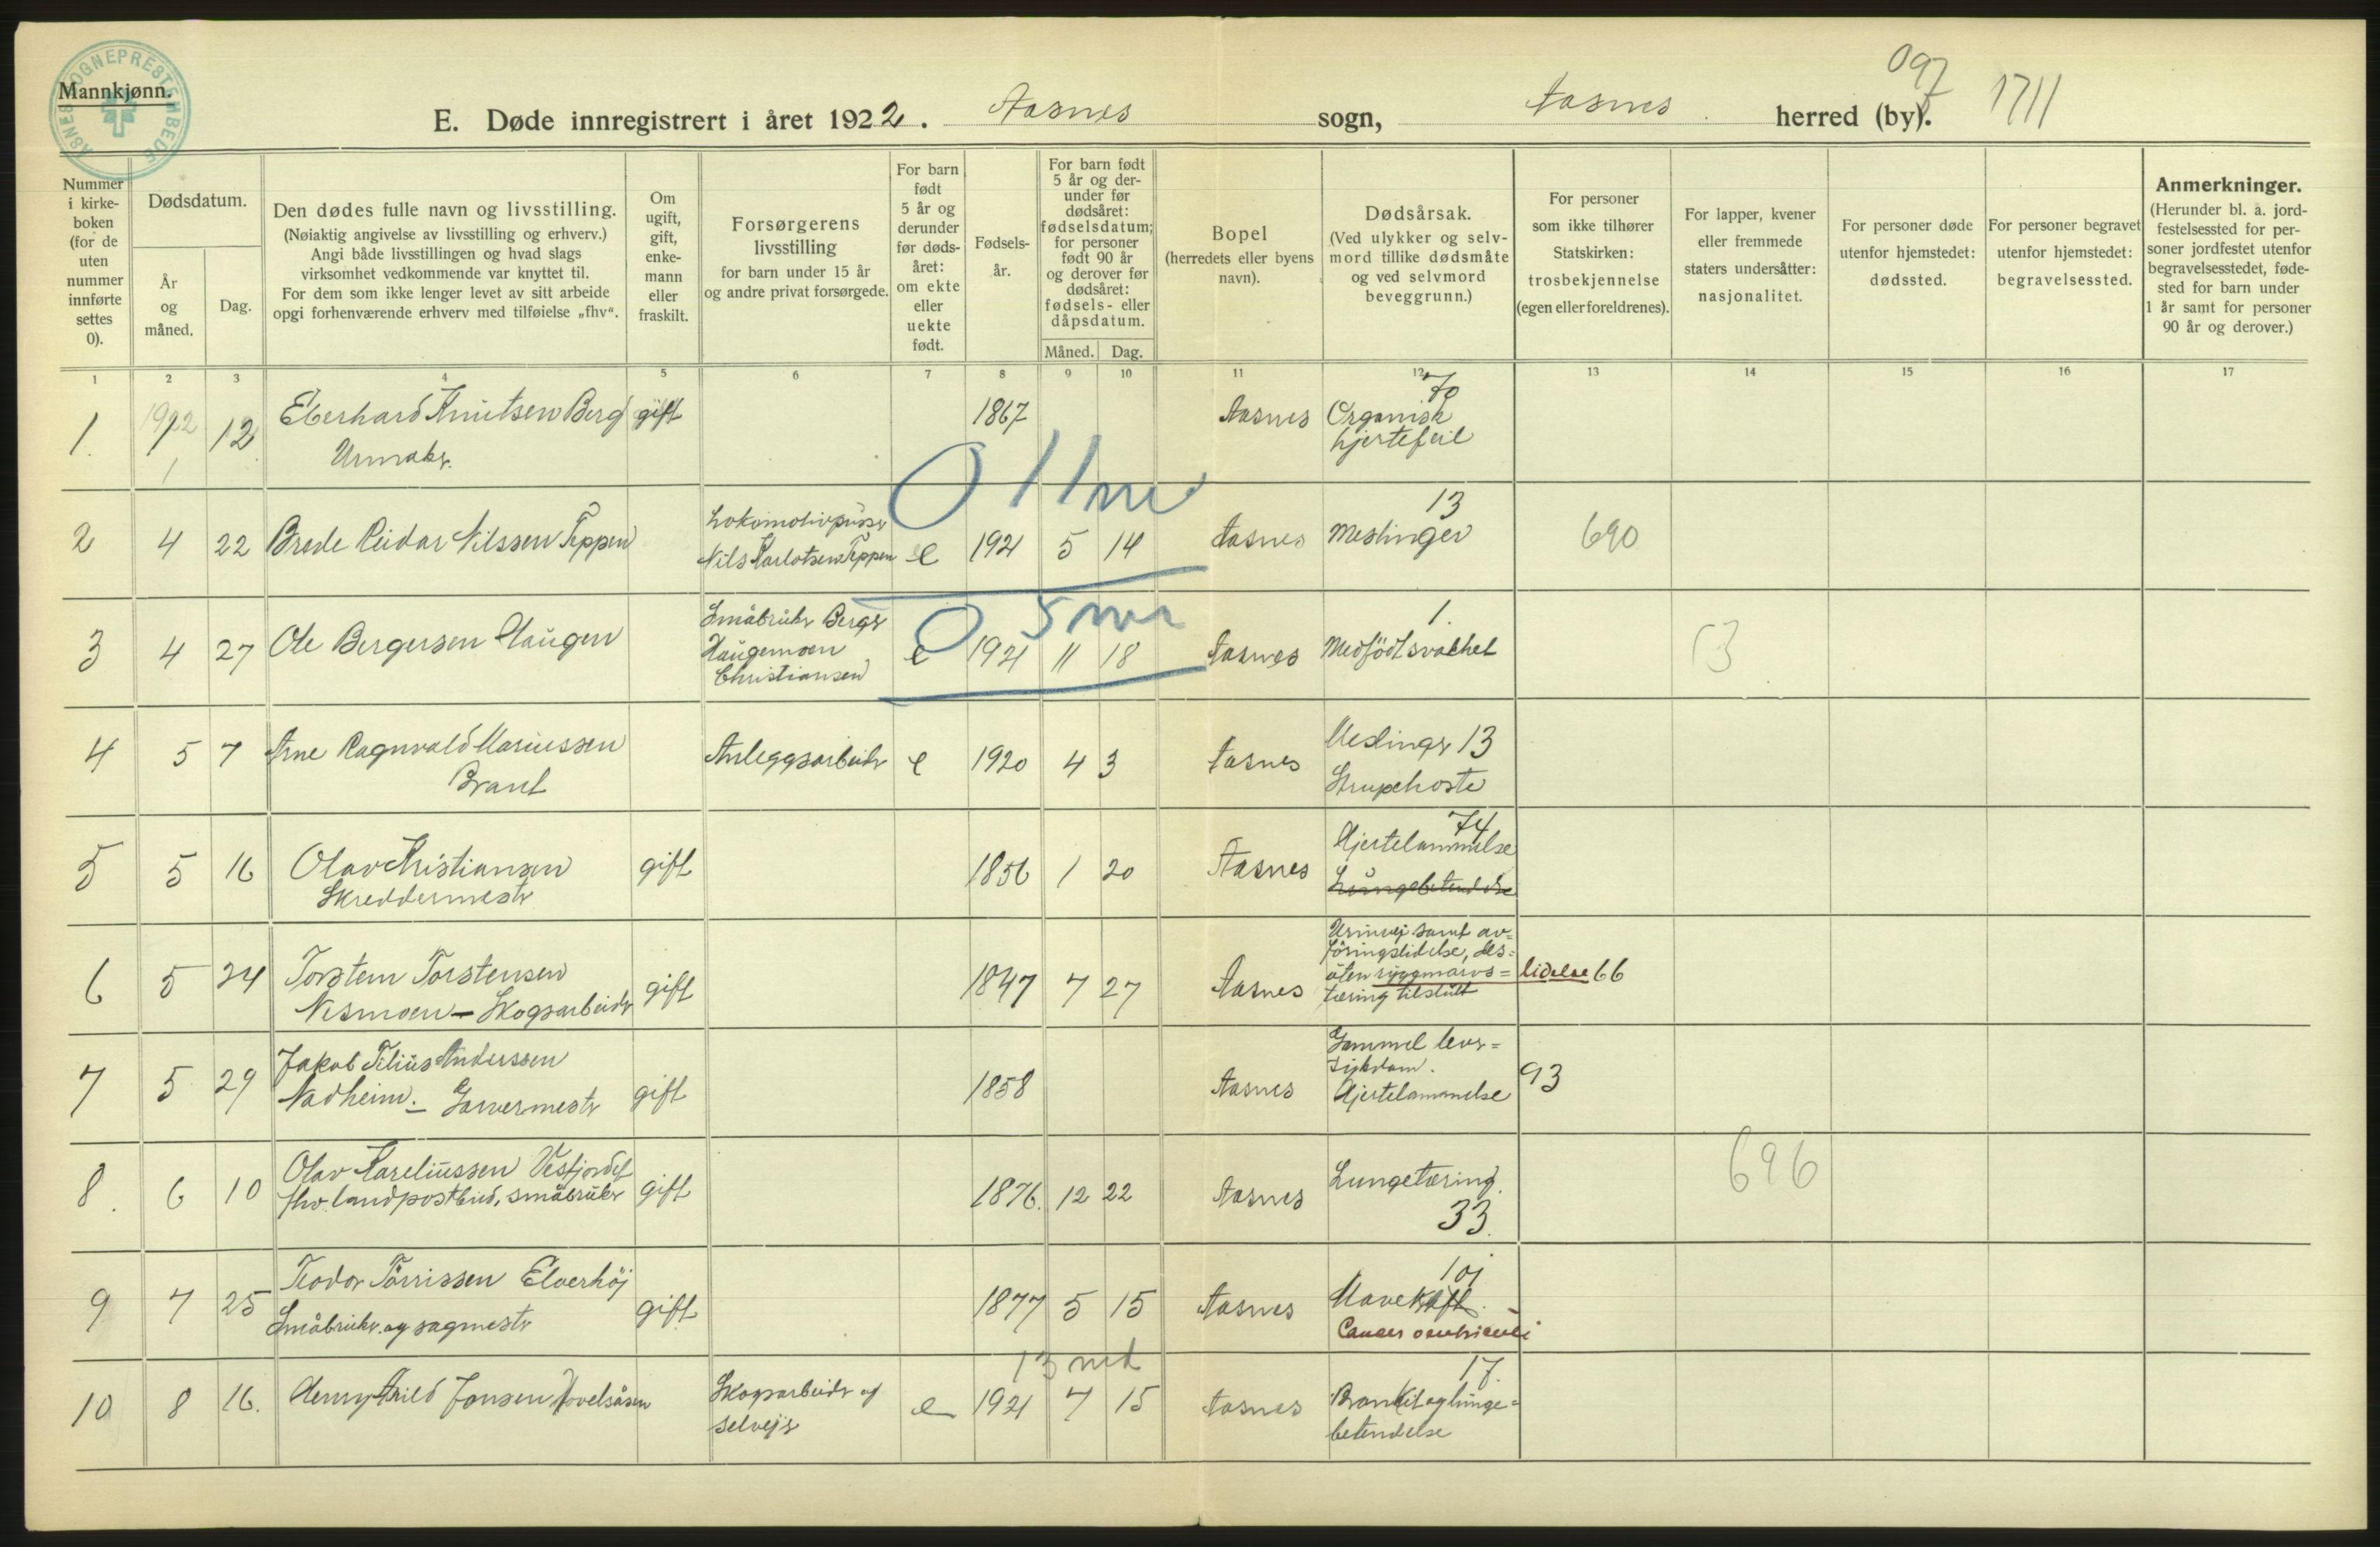 ÅSNES SOGNEPRESTEMBEDE
Mannkjønn.
E. Døde innregistrert i året 1922. Aasnes sogn, Aasnes herred (by).
097 1711
Nummer i kirke-boken (for de uten nummer innførte settes 0).
Dødsdatum.
År og måned.
Dag.
Den dødes fulle navn og livsstilling.
(Nøiaktig angivelse av livsstilling og erhverv.)
Angi både livsstillingen og hvad slags
virksomhet vedkommende var knyttet til.
For dem som ikke lenger levet av sitt arbeide
opgi forhenværende erhverv med tilføielse „fhv“.
Om ugift, gift, enke-mann eller fraskilt.
Forsørgerens livsstilling
for barn under 15 år
og andre privat forsørgede.
For barn født 5 år og derunder før døds-året: om ekte eller uekte født.
Fødsels-år.
For barn født 5 år og der-under før dødsåret: fødselsdatum; for personer født 90 år og derover før dødsåret: fødsels- eller dåpsdatum.
Måned. Dag.
Bopel
(herredets eller byens navn).
Dødsårsak.
(Ved ulykker og selv-mord tillike dødsmåte og ved selvmord beveggrunn.)
For personer som ikke tilhører Statskirken: trosbekjennelse (egen eller foreldrenes).
For lapper, kvener eller fremmede staters undersåtter: nasjonalitet.
For personer døde utenfor hjemstedet: dødssted.
For personer begravet utenfor hjemstedet: begravelsessted.
Anmerkninger.
(Herunder bl. a. jord-festelsessted for per-soner jordfestet utenfor begravelsesstedet, føde-sted for barn under 1 år samt for personer 90 år og derover.)
1 2 3 4 5 6 7 8 9 10 11 12 13 14 15 16 17
1. 1922 1 12 Eberhard Knutsen Berg gift 1867 Aasnes Organisk 70
Urmaker. hjertefeil
0 11 mnd
2 4 22 Brede Reidar Nilssen Teppen Lokomotivpusser
Nils Karlotsen Teppen e 1921 5 14 Aasnes Meslinger 13 690
0 5 mnd
3 4 27 Ole Bergersen Haugen Småbruker Berger
Haugemoen
Christiansen e 1921 11 18 Aasnes Medfödt svakhet 1. 13
4 5 7 Arne Ragnvald Mariussen Anleggsarbeider e 1920 4 3 Aasnes Meslinger 13
Brant Strupehoste
5 5 16 Olav Kristiansen gift 1856 1 20 Aasnes Hjertelammelse 74
Skreddermester Lungebetendelse
6 5 24 Torstein Torstensen gift 1847 7 27 Aasnes Urinvej samt av=
föringslidelse, des=
Nesmoen – Skogsarbeider uten ryggmarvs= lidelse 66
tæring tilstött
7 5 29 Jakob Tilius Anderssen gift 1858 Aasnes Gammel lever=
sykdom. 93
Nadheim. – Garvermester Hjertelammelse
8. 6 10 Olav Kareliussen Vesfjordet gift 1876. 12 22 Aasnes Lungetæring. 696
fhv. landpostbud, småbruker 33.
9 7 25 Teodor Törrissen Elverhöj gift 1877 5 15 Aasnes Mavekreft. 101
Småbruker og sagmester Cancer ventriculi
13 mnd
10 8 16. Henny Arild Jonsen Hovelsåsen Skogsarbeider og
selvejer e 1921 7 15 Aasnes Bronkit og lunge= 17.
betendelse